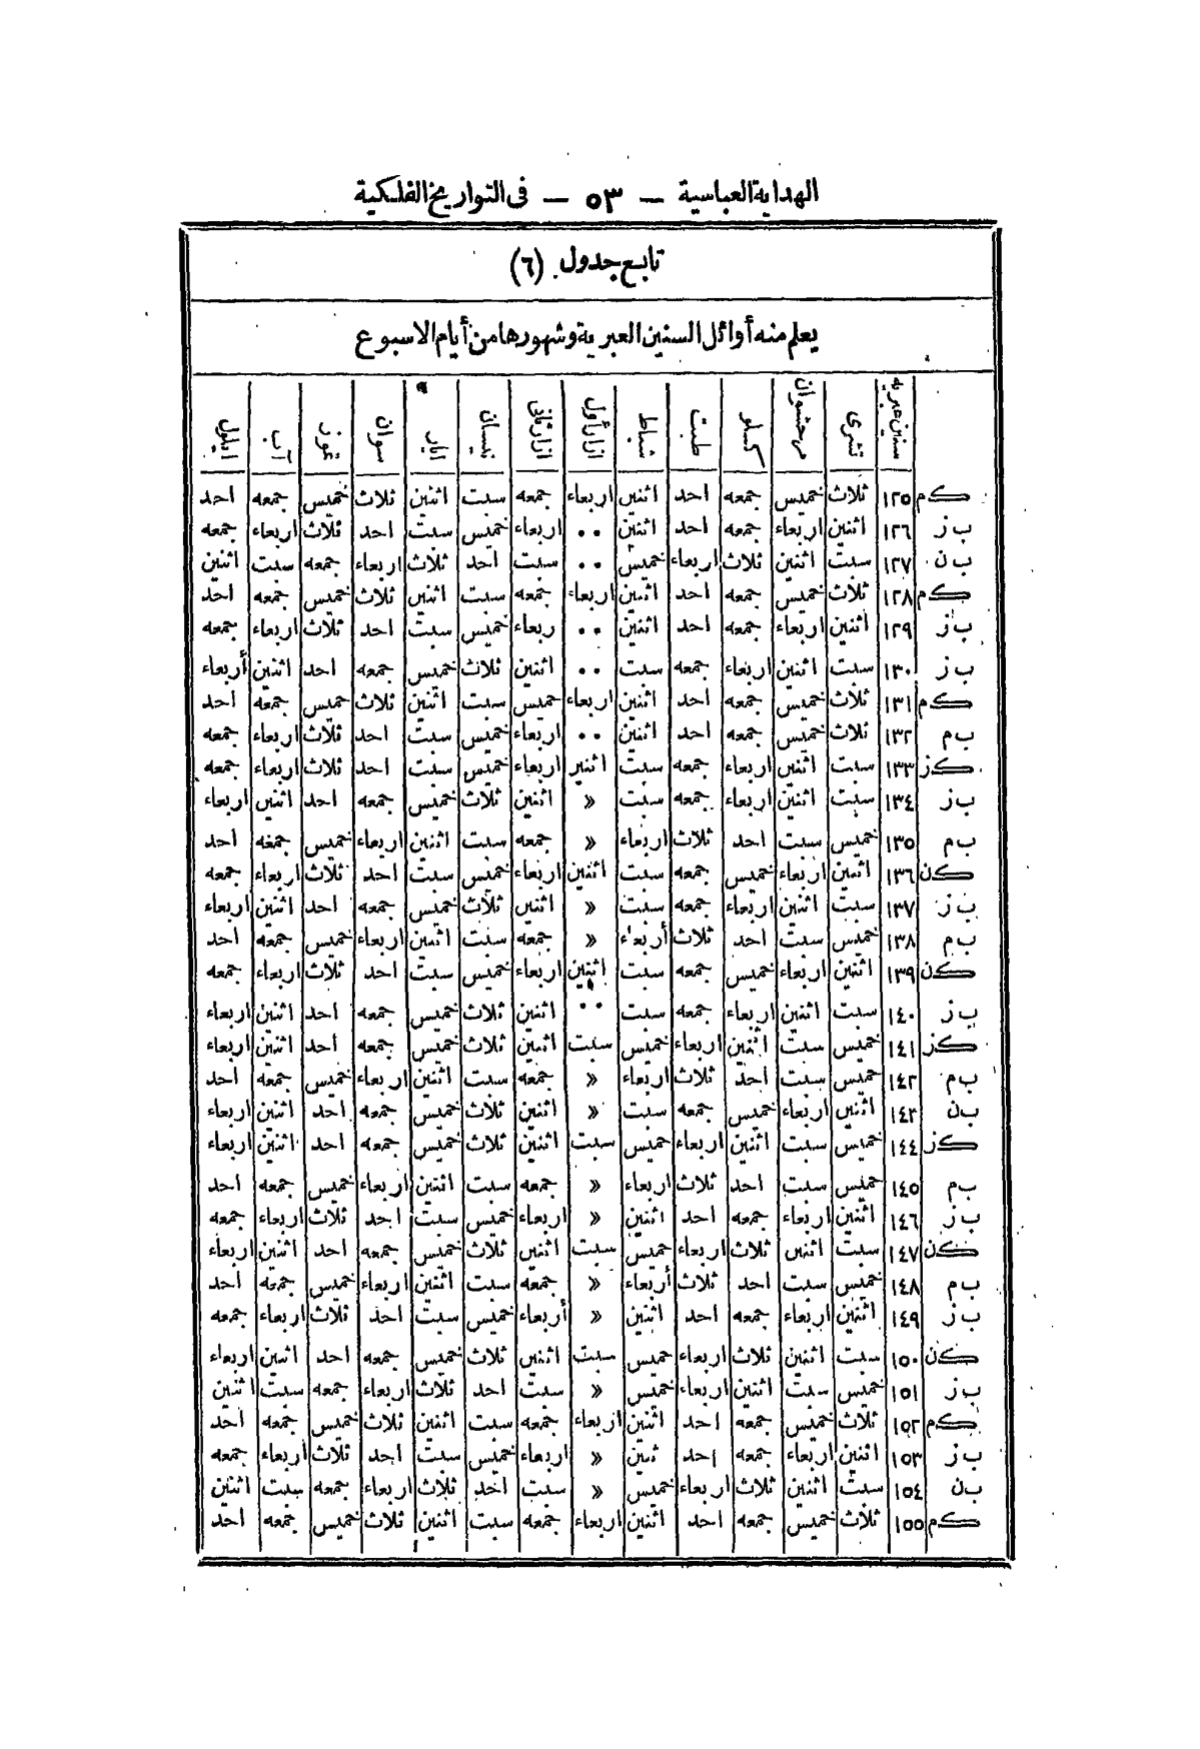 الهداية العباسية — ٥٣ — فى التواريخ الفلكية
تابع جدول (٦)
يعلم منه أوائل السنين العبرية وشهورها من أيام الاسبوع
سنين عبريه تشرى مرحشوان كسلو طبت شباط ازار أول ازار ثانى نيسان ايار سوان تموز آب ايلول
كم ١٢٥ ثلاث خميس جمعه احد اثنين اربعاء جمعه سبت اثنين ثلاث خميس جمعه احد
ب ز ١٢٦ اثنين اربعاء جمعه احد اثنين .. اربعاء خميس سبت احد ثلاث اربعاء جمعه
ب ن ١٢٧ سبت اثنين ثلاث اربعاء خميس .. سبت احد ثلاث اربعاء جمعه سبت اثنين
كم ١٢٨ ثلاث خميس جمعه احد اثنين اربعاء جمعه سبت اثنين ثلاث خميس جمعه احد
ب ز ١٢٩ اثنين اربعاء جمعه احد اثنين .. ربعاء خميس سبت احد ثلاث اربعاء جمعه
ب ز ١٣٠ سبت اثنين اربعاء جمعه سبت .. اثنين ثلاث خميس جمعه احد اثنين أربعاء
كم ١٣١ ثلاث خميس جمعه احد اثنين اربعاء خميس سبت اثنين ثلاث خميس جمعه احد
ب م ١٣٢ ثلاث خميس جمعه احد اثنين .. اربعاء خميس سبت احد ثلاث اربعاء جمعه
كز ١٣٣ سبت اثنين اربعاء جمعه سبت اثنين اربعاء خميس سبت احد ثلاث اربعاء جمعه
ب ز ١٣٤ سبت اثنين اربعاء جمعه سبت » اثنين ثلاث خميس جمعه احد اثنين اربعاء
ب م ١٣٥ خميس سبت احد ثلاث اربعاء » جمعه سبت اثنين اربعاء خميس جمعه احد
كن ١٣٦ اثنين اربعاء خميس جمعه سبت اثنين اربعاء خميس سبت احد ثلاث اربعاء جمعه
ب ز ١٣٧ سبت اثنين اربعاء جمعه سبت » اثنين ثلاث خميس جمعه احد اثنين اربعاء
ب م ١٣٨ خميس سبت احد ثلاث أربعاء » جمعه سبت اثنين اربعاء خميس جمعه احد
كن ١٣٩ اثنين اربعاء خميس جمعه سبت اثنين اربعاء خميس سبت احد ثلاث اربعاء جمعه
ب ز ١٤٠ سبت اثنين اربعاء جمعه سبت .. اثنين ثلاث خميس جمعه احد اثنين اربعاء
كز ١٤١ خميس سبت اثنين اربعاء خميس سبت اثنين ثلاث خميس جمعه احد اثنين اربعاء
ب م ١٤٢ خميس سبت احد ثلاث اربعاء » جمعه سبت اثنين اربعاء خميس جمعه احد
ب ن ١٤٣ اثنين اربعاء خميس جمعه سبت » اثنين ثلاث خميس جمعه احد اثنين اربعاء
كز ١٤٤ خميس سبت اثنين اربعاء خميس سبت اثنين ثلاث خميس جمعه احد اثنين اربعاء
ب م ١٤٥ خميس سبت احد ثلاث اربعاء » جمعه سبت اثنين اربعاء خميس جمعه احد
ب ز ١٤٦ اثنين اربعاء جمعه احد اثنين » اربعاء خميس سبت احد ثلاث اربعاء جمعه
كن ١٤٧ سبت اثنين ثلاث اربعاء خميس سبت اثنين ثلاث خميس جمعه احد اثنين اربعاء
ب م ١٤٨ خميس سبت احد ثلاث أربعاء » جمعه سبت اثنين اربعاء خميس جمعه احد
ب ز ١٤٩ اثنين اربعاء جمعه احد اثنين » أربعاء خميس سبت احد ثلاث اربعاء جمعه
كن ١٥٠ سبت اثنين ثلاث اربعاء خميس سبت اثنين ثلاث خميس جمعه احد اثنين اربعاء
ب ز ١٥١ خميس سبت اثنين اربعاء خميس » سبت احد ثلاث اربعاء جمعه سبت اثنين
كم ١٥٢ ثلاث خميس جمعه احد اثنين اربعاء جمعه سبت اثنين ثلاث خميس جمعه احد
ب ز ١٥٣ اثنين اربعاء جمعه احد ثنين » اربعاء خميس سبت احد ثلاث اربعاء جمعه
ب ن ١٥٤ سبت اثنين ثلاث اربعاء خميس » سبت احد ثلاث اربعاء جمعه سبت اثنين
كم ١٥٥ ثلاث خميس جمعه احد اثنين اربعاء جمعه سبت اثنين ثلاث خميس جمعه احد